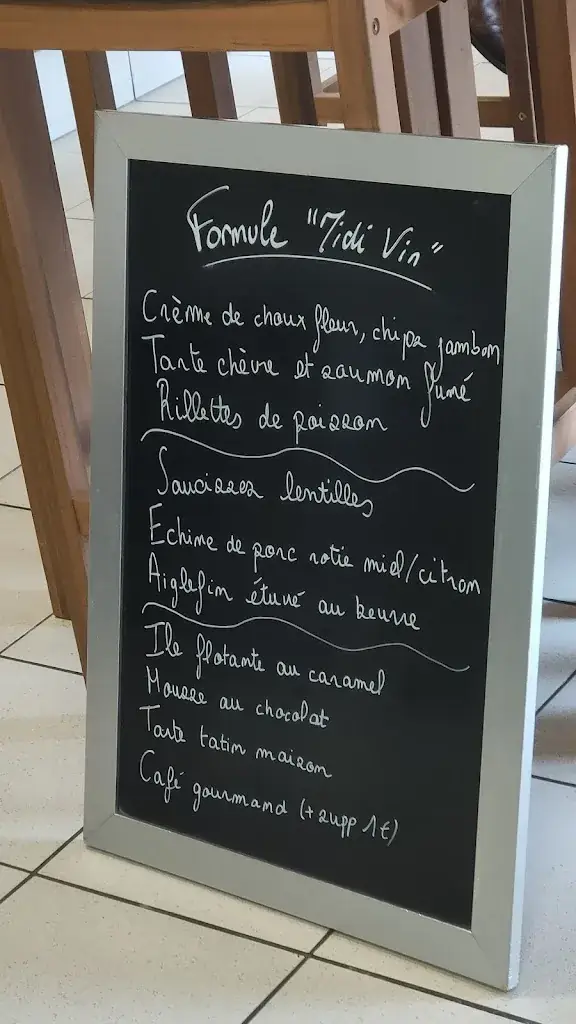 Formule "Midi Vin"
Crème de choux fleur, chips jambon
Tarte chèvre et saumon fumé
Rillettes de poisson
Saucisses lentilles
Echine de porc rotie miel/citron
Aiglefin étuvé au beurre
Ile flotante au caramel
Mousse au chocolat
Tarte tatin maison
Café gourmand (+ supp 1€)